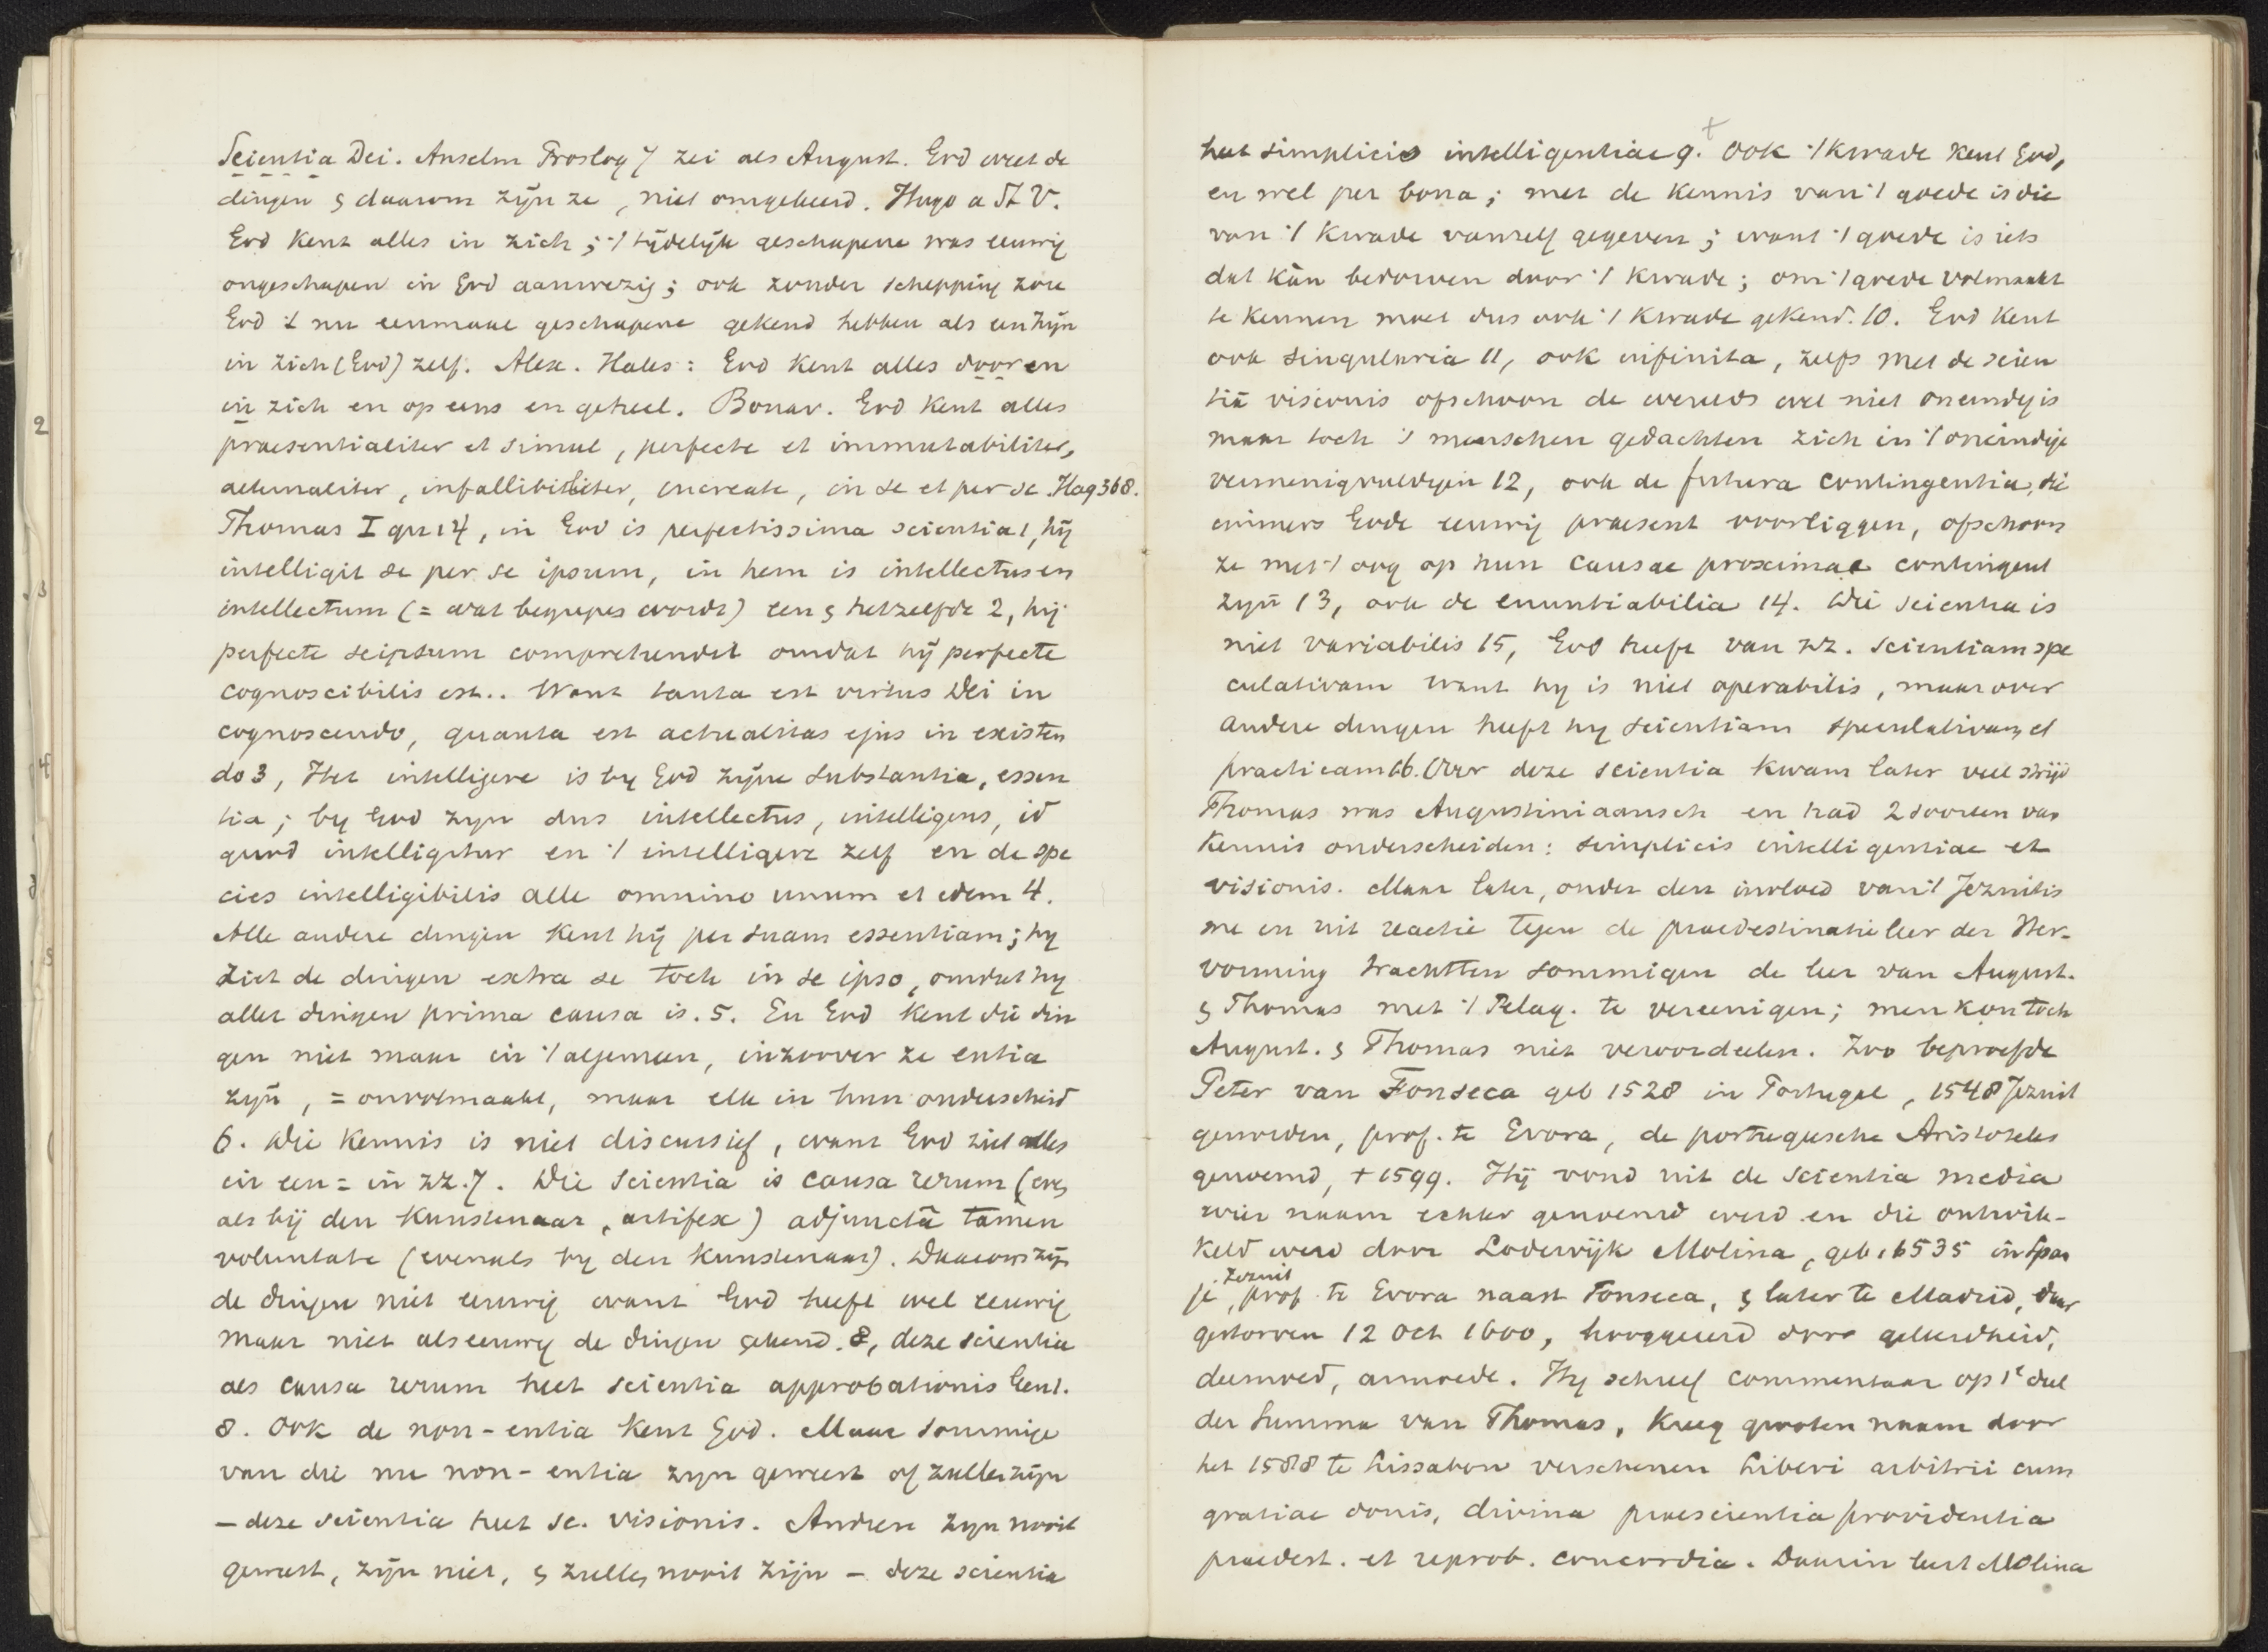 Scientia Dei. Anselm Proslog 7 zei als August. God weet de
dingen & daarom zijn ze, niet omgekeerd. Hugo a St V.
God kent alles in zich; 't tijdelijk geschapene was eeuwig
ongeschapen in God aanwezig; ook zonder schepping zou
God 't nu eenmaal geschapene gekend hebben als een zijn
in zich (God) zelf. Alex. Hales: God kent alles door en
in zich en op eens en geheel. Bonav. God kent alles
praesentialiter et simul, perfecte et immutabiliter,
aeternaliter, infallibiliter, increate, in se et per se. Hag 368.
Thomas I qu 14, in God is perfectissima scientia 1, hij
intelligit se per se ipsum, in hem is intellectus en
intellectum (= wat begrepen wordt) een & hetzelfde 2, hij
perfecte seipsum comprehendit omdat hij perfecte
cognoscibilis est.. Want tanta est virtus Dei in
cognoscendo, quanta est actualitas ejus in existen
do 3, Het intelligere is by God zijne substantia, essen
tia; by God zyn dus intellectus, intelligens, id
quod intelligitur en 't intelligere zelf en de spe
cies intelligibilis alle omnino unum et idem 4.
Alle andere dingen kent hij per suam essentiam; hy
ziet de dingen extra se toch in se ipso, omdat hy
aller dingen prima causa is. 5. En God kent die din
gen niet maar in 't algemeen, inzoover ze entia
zijn, = onvolmaakt, maar elk in hun onderscheid
6. Die kennis is niet discursief, want God ziet alles
in een = in zz. 7. Die scientia is causa rerum (even
als bij den kunstenaar, artifex) adjunctâ tamen
voluntate (evenals by den kunstenaar). Daarom zijn
de dingen niet eeuwig want God heeft wel eeuwig
maar niet als eeuwig de dingen gekend. 8, deze scientia
als causa rerum heet scientia approbationis ibid.
8. Ook de non-entia kent God. Maar sommige
van die nu non-entia zyn geweest of zullen zijn
— deze scientia heet sc. visionis. Andere zyn nooit
geweest, zijn niet, & zullen nooit zijn — deze scientia
heet simplicis intelligentiae 9. Ook 't kwade kent God,
en wel per bona; met de kennis van 't goede is die
van 't kwade vanzelf gegeven; want 't goede is iets
dat kàn bedorven door 't kwade; om 't goede volmaakt
te kennen moet dus ook 't kwade gekend. 10. God kent
ook singularia 11, ook infinita, zelfs met de scien
tiâ visionis ofschoon de wereld wel niet oneindig is
maar toch 's menschen gedachten zich in 't oneindige
vermenigvuldigen 12, ook de futura contingentia, die
immers Gode eeuwig praesent voorliggen, ofschoon
ze met 't oog op hun causae proximae contingent
zyn 13, ook de enuntiabilia 14. Die scientia is
niet variabilis 15, God heeft van zz. scientiam spe
culativam want hy is niet operabilis, maar over
andere dingen heeft hy scientiam speculativam et
practicam 16. Over deze scientia kwam later veel strijd
Thomas was Augustiniaansch en had 2 soorten van
kennis onderscheiden: simplicis intelligentiae et
visionis. Maar later, onder den invloed van 't Jezuitis
me en uit reactie tegen de praedestinatieleer der Her-
vorming trachtten sommigen de leer van August.
& Thomas met 't Pelag. te vereenigen; men kon toch
August. & Thomas niet veroordeelen. Zoo beproefde
Peter van Fonseca geb 1528 in Portugal, 1548 Jezuit
geworden, prof. te Evora, de portugesche Aristoteles
genoemd, † 1599. Hij vond uit de scientia media
wier naam echter genoemd werd en die ontwik-
keld werd door Lodewijk Molina, geb. 16535 in Span
je, Jezuit prof te Evora naast Fonseca, & later te Madrid, daar
gestorven 12 Oct 1600, hooggeeerd door geleerdheid,
deemoed, armoede. Hy schreef commentaar op 1e deel
der Summa van Thomas, kreeg grooten naam door
het 1588 te Lissabon verschenen Liberi arbitrii cum
gratiae donis, divina praescientia providentia
praedest. et reprob. concordia. Daarin leert Molina